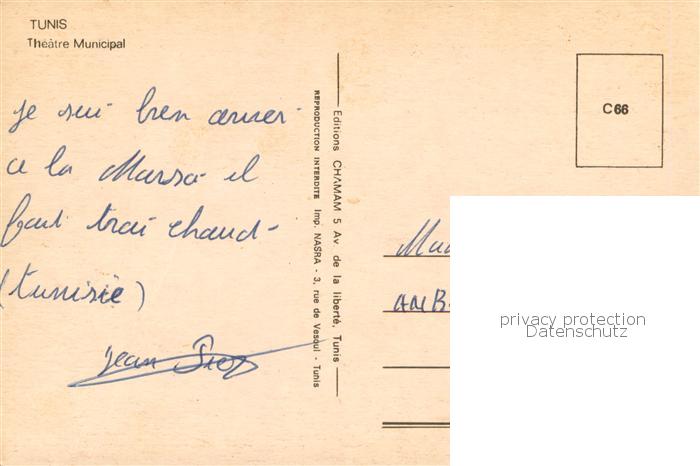 TUNIS
Théâtre Municipal
je sui bien arriver
a la Marsa il
fait trai chaud-
(tunisie)
jean
Editions CHAMAM 5 Av. de la liberté, Tunis
REPRODUCTION INTERDITE Imp. NASRA - 3, rue de Vesoul - Tunis
C66
privacy protection
Datenschutz